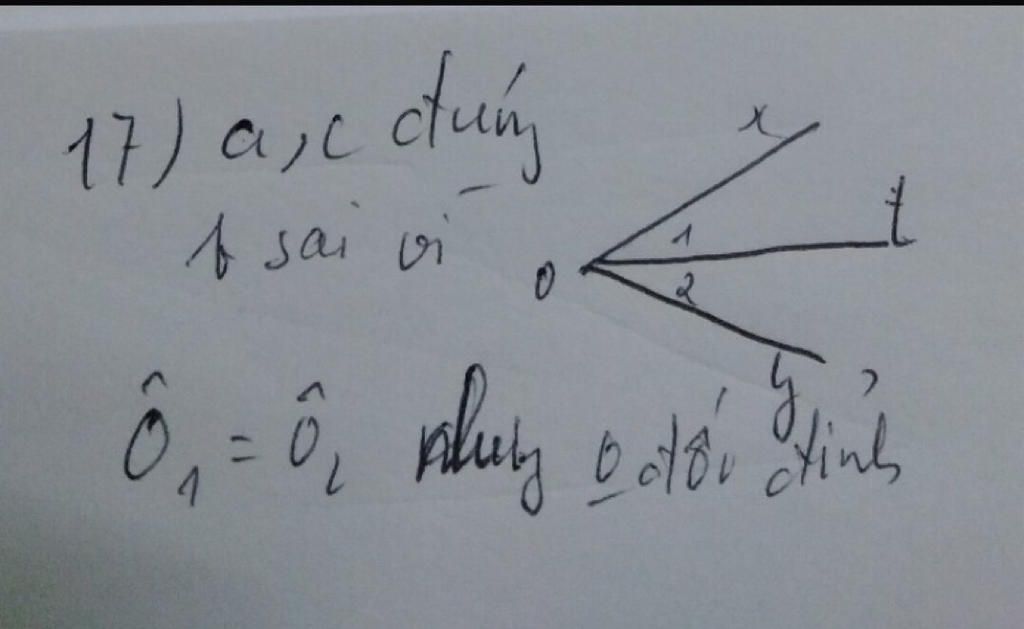 17) a, c đúng
b sai vì
x
t
1
O
2
y
Ô₁ = Ô₂ nhưng o đối đỉnh